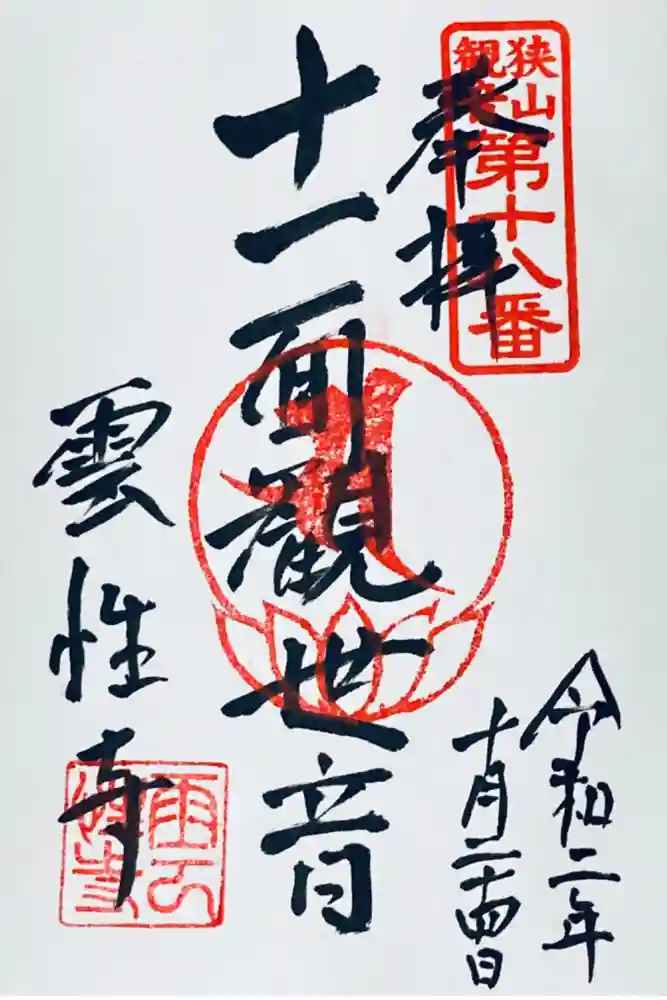 狭山
観音
第十八番
奉拝
令和二年
十月二十四日
十一面観世音
雲性寺
雲性寺